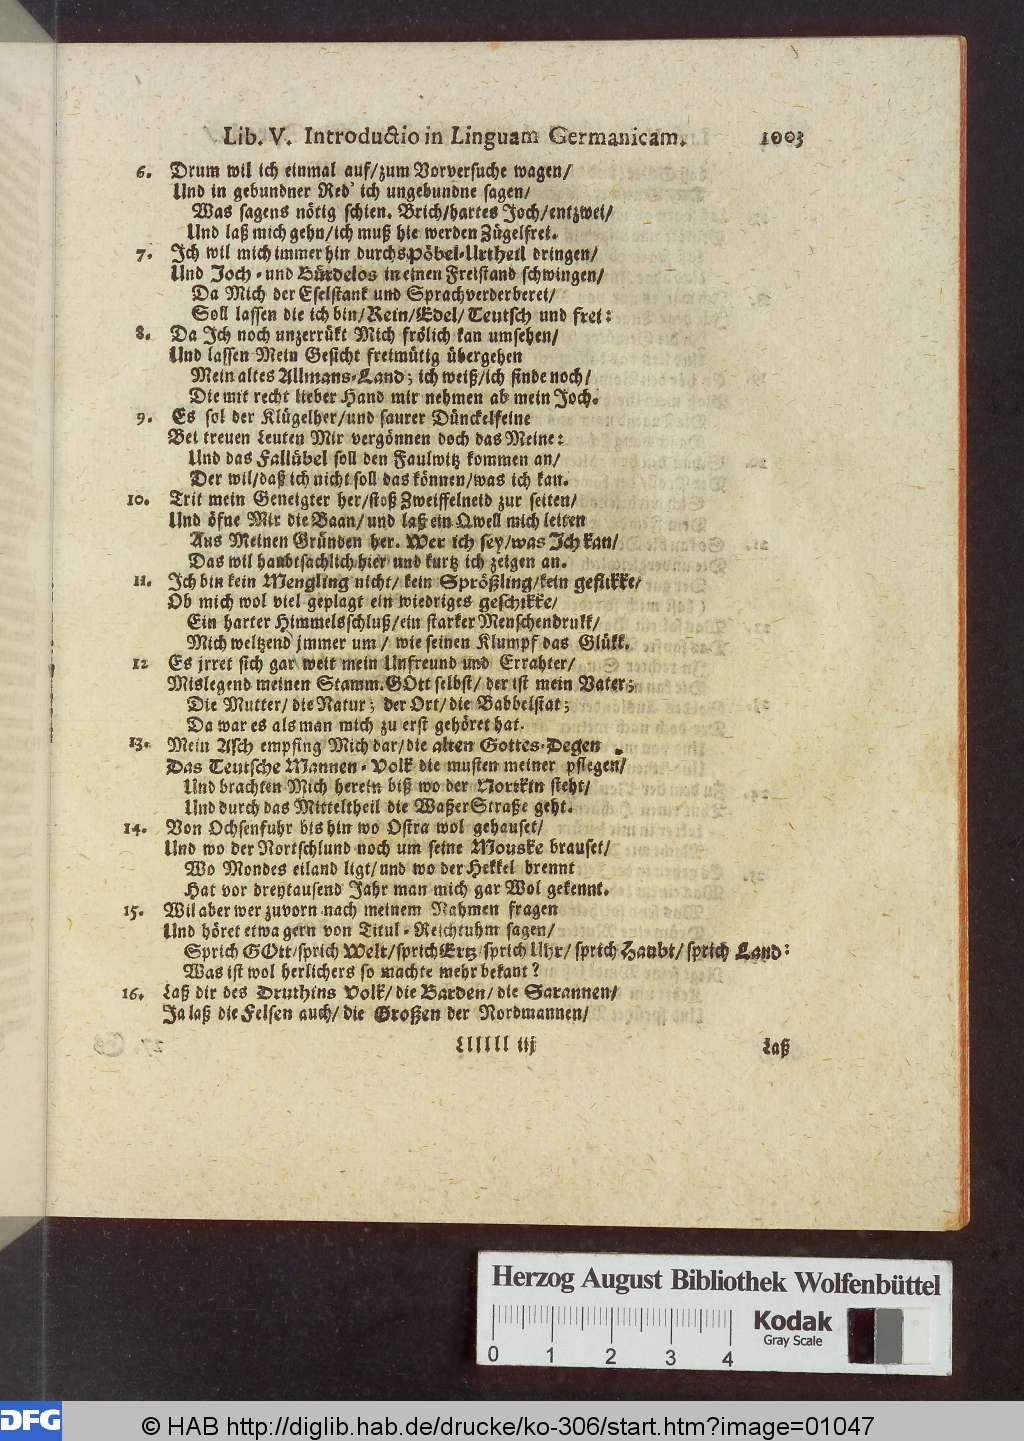 Lib. V. Introductio in Linguam Germanicam. 1003
6. Drum wil ich einmal auf/zum Vorversuche wagen/
Und in gebundner Red' ich ungebundne sagen/
Was sagens nötig schien. Brich/hartes Joch/entzwei/
Und laß mich gehn/ich muß hie werden Zügelfrei.
7. Ich wil mich immer hin durchs Pöbel-Urtheil dringen/
Und Joch-und Bürdelos in einen Freistand schwingen/
Da Mich der Eselstank und Sprachverderberei/
Soll lassen die ich bin/Rein/Edel/Teutsch und frei:
8. Da Ich noch unzerrükt Mich frölich kan umsehen/
Und lassen Mein Gesicht freimütig übergehen
Mein altes Allmans-Land; ich weiß/ich finde noch/
Die mit recht lieber Hand mir nehmen ab mein Joch.
9. Es sol der Klügelher/und saurer Dünckelfeine
Bei treuen Leuten Mir vergönnen doch das Meine:
Und das Fallübel soll den Faulwitz kommen an/
Der wil/daß ich nicht soll das können/was ich kan.
10. Trit mein Geneigter her/stoß Zweiffelneid zur seiten/
Und öfne Mir die Baan/und laß ein Qwell mich leiten
Aus Meinen Gründen her. Wer ich sey/was Ich kan/
Das wil haubtsachlich hier und kurtz ich zeigen an.
11. Ich bin kein Mengling nicht/ kein Sprößling/kein geflikke/
Ob mich wol viel geplagt ein wiedriges geschikke/
Ein harter Himmelsschluß/ein starker Menschendrukk/
Mich weltzend jmmer um/ wie seinen Klumpf das Glükk.
12 Es jrret sich gar weit mein Unfreund und Errahter/
Mislegend meinen Stamm. GOtt selbst/ der ist mein Vater;
Die Mutter/ die Natur; der Ort/ die Babbelstat;
Da war es als man mich zu erst gehöret hat.
13. Mein Asch empfing Mich dar/die alten Gottes-Degen
Das Teutsche Mannen-Volk die musten meiner pflegen/
Und brachten Mich herein biß wo der Norrkin steht/
Und durch das Mitteltheil die Waßer Straße geht.
14. Von Ochsenfuhr bis hin wo Ostra wol gehauset/
Und wo der Nortschlund noch um seine Mouske brauset/
Wo Mondes eiland ligt/und wo der Hekkel brennt
Hat vor dreytausend Jahr man mich gar Wol gekennt.
15. Wil aber wer zuvorn nach meinem Nahmen fragen
Und höret etwa gern von Titul-Reichtuhm sagen/
Sprich GOtt/sprich Welt/sprich Ertz/sprich Uhr/ sprich Haubt/ sprich Land:
Was ist wol herlichers so machte mehr bekant?
16. Laß dir des Druthins Volk/die Barden/die Sarannen/
Ja laß die Felsen auch/ die Großen der Nordmannen/
Llllll iij Laß
Herzog August Bibliothek Wolfenbüttel
0 1 2 3 4
Kodak
Gray Scale
DFG
© HAB http://diglib.hab.de/drucke/ko-306/start.htm?image=01047